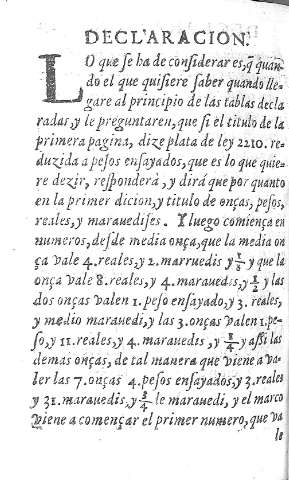 DECLARACION.
LO que se ha de considerar es, q̃ quan
do el que quisiere saber quando lle
gare al principio de las tablas decla
radas, y le preguntaren, que si el titulo de la
primera pagina, dize plata de ley 2210. re-
duzida a pesos ensayados, que es lo que quie-
re dezir, respondera, y dirá que por quanto
en la primer dicion, y titulo de onças, pesos,
reales, y marauedises. Y luego comiença en
numeros, desde media onça, que la media on
ça vale 4. reales, y 2. marruedis y y que la
onça vale 8. reales, y 4. marauedis, y y las
dos onças valen 1. peso ensayado, y 3. reales,
y medio marauedi, y las 3. onças valen 1. pe-
so, y 11. reales, y 4. marauedis, y 3/4 y assi las
demas onças, de tal manera que viene a va-
ler las 7. onças 4. pesos ensayados, y 3. reales
y 31. marauedis, y 3/4 le marauedi, y el marco
viene a començar el primer numero, que va
le